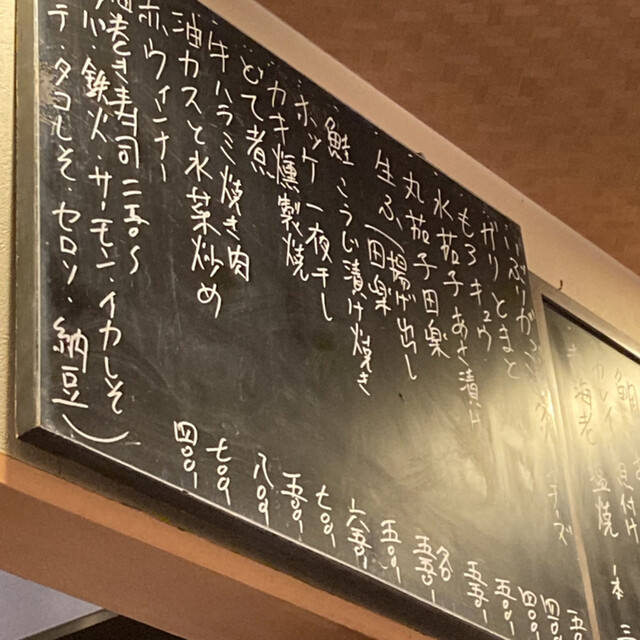 海老 塩焼 一本
いぶりがっこ チーズ
ガリとまと 四〇〇-
もろキュウ 四〇〇-
水茄子あさ漬け 五〇〇-
丸茄子田楽 五五〇-
生ふ（揚げ出し 各五五〇-
田楽
鮭こうじ漬け焼き 五〇〇-
ホッケ一夜干し 六五〇-
カキ燻製焼 七〇〇-
どて煮 五〇〇-
牛ハラミ焼き肉 八〇〇-
油カスと水菜炒め 七〇〇-
赤ウィンナー 四〇〇-
焼き寿司 二五〇〜
・鉄火・サーモン・イカしそ
テ・タコしそ・セロリ・納豆）